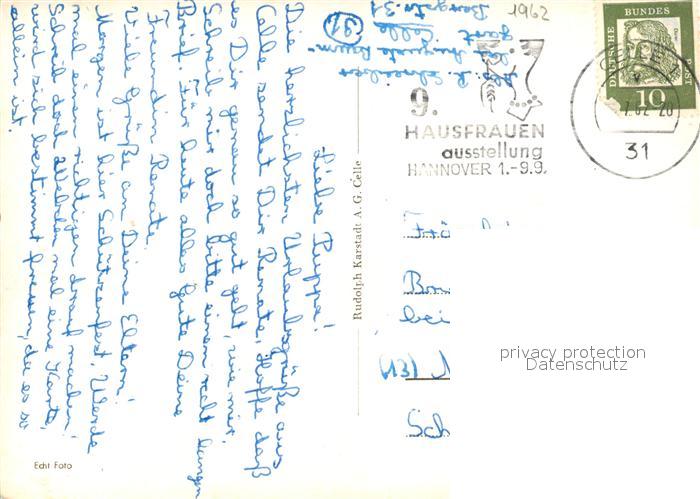 Liebe Puppe!
Die herzlichsten Urlaubsgrüße aus
Celle sendet Dir Renate. Hoffe daß
es Dir genau so gut geht, wie mir.
Schreib mir doch bitte einen recht langen
Brief. Für heute alles gute Deine
Freundin Renate.
Viele Grüße an Deine Eltern!
Morgen ist hier Schützenfest. Werde
mal einen richtigen drauf machen!
Schreib doch mal eine Karte,
wird sich bestimmt freuen, da es so
allein ist.
Echt Foto
Rudolph Karstadt A. G. Celle
R. Schreiber
Celle
Bergstr. 31
(91)
1962
9.
HAUSFRAUEN
ausstellung
HANNOVER 1.-9.9.
31
DEUTSCHE BUNDESPOST
10
bei
(13)
privacy protection
Datenschutz